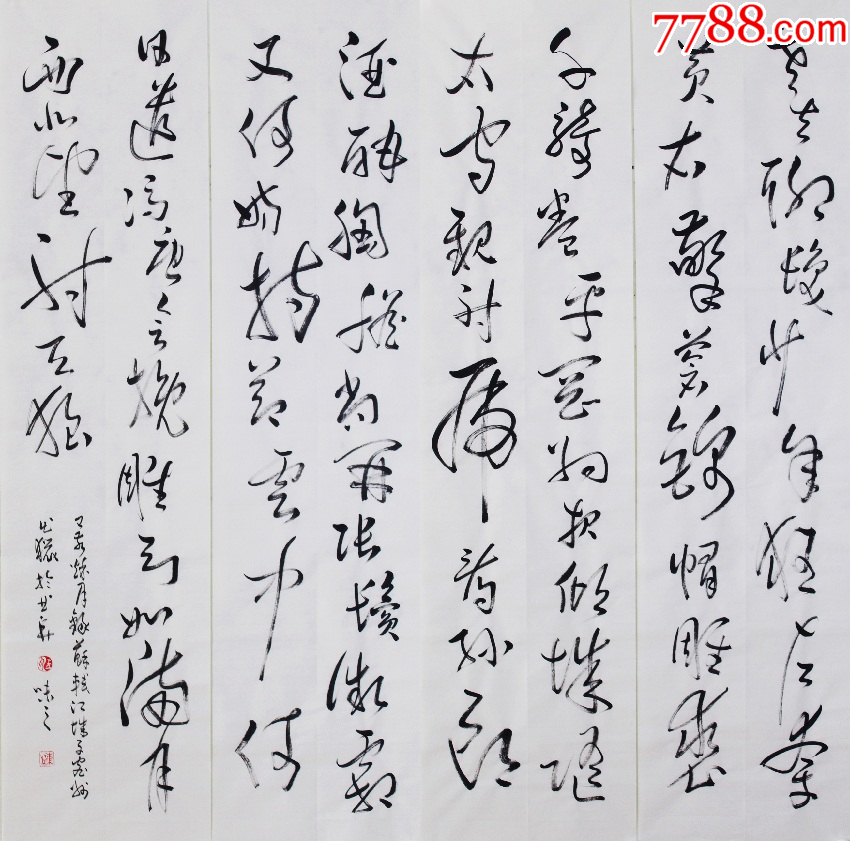 7788.com
老夫聊發少年狂左牽
黃右擎蒼錦帽貂裘
千騎卷平岡为报倾城随
太守親射虎看孙郎
酒酣胸膽尚開張鬢微霜
又何妨持節雲中何
日遣馮唐會挽雕弓如滿月
西北望射天狼
月錄蘇軾江城子密州
出獵於 軒 味之